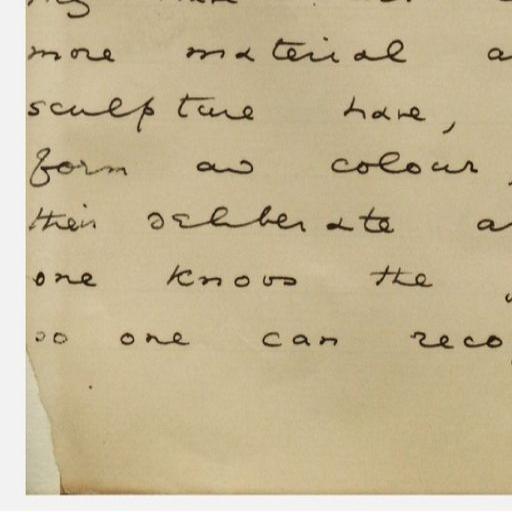 more material a
sculpture have,
form and colour,
their deliberate a
one knows the
so one can reco